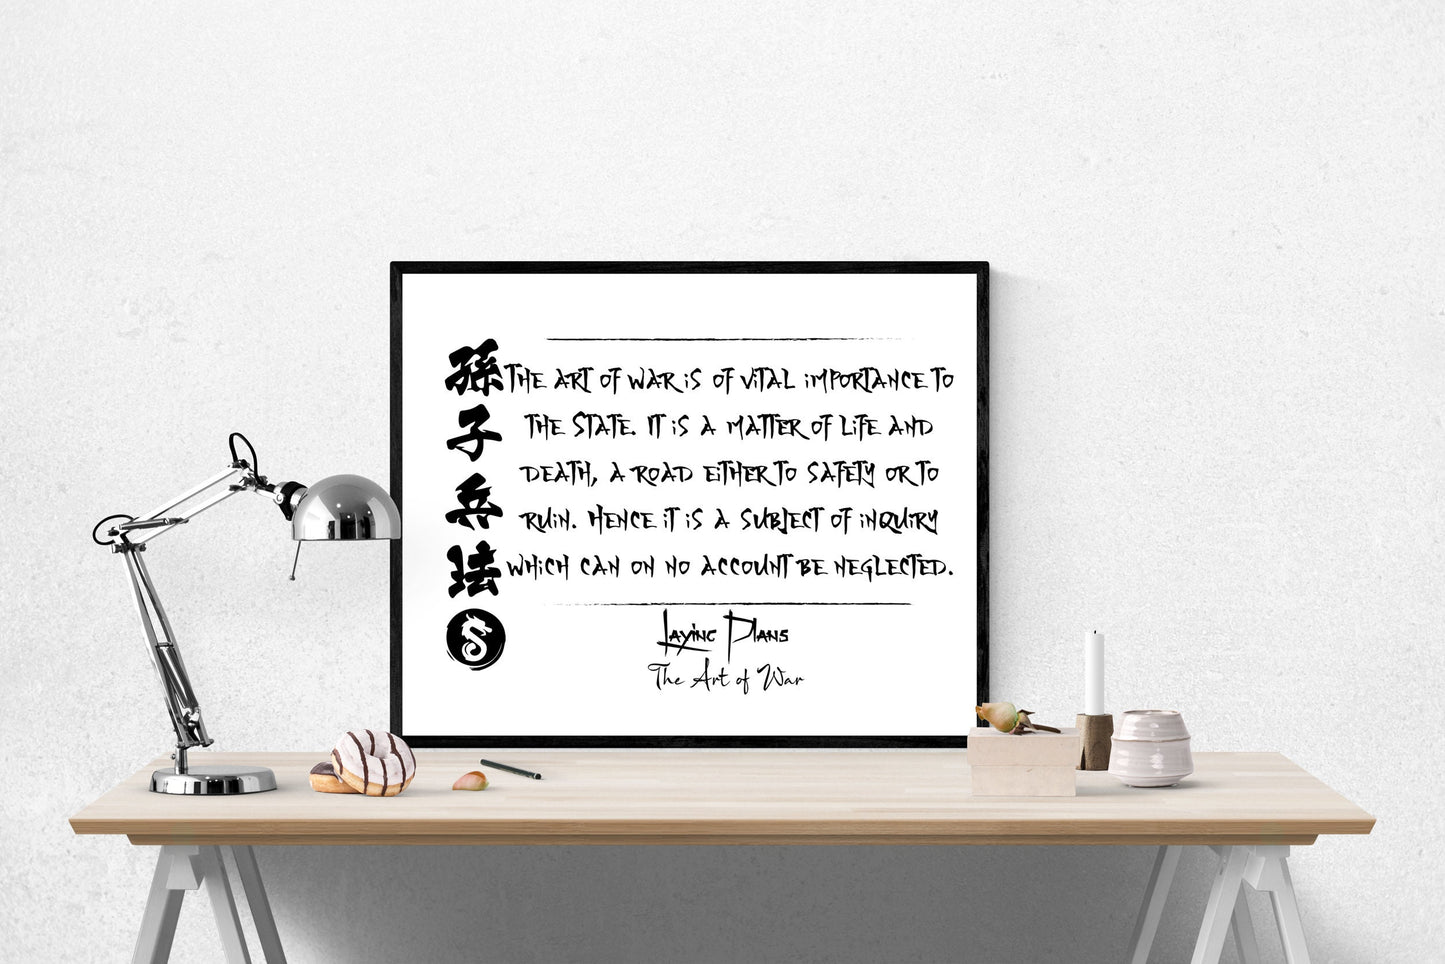 孫子兵法
The art of war is of vital importance to
the State. It is a matter of life and
death, a road either to safety or to
ruin. Hence it is a subject of inquiry
which can on no account be neglected.
Laying Plans
The Art of War